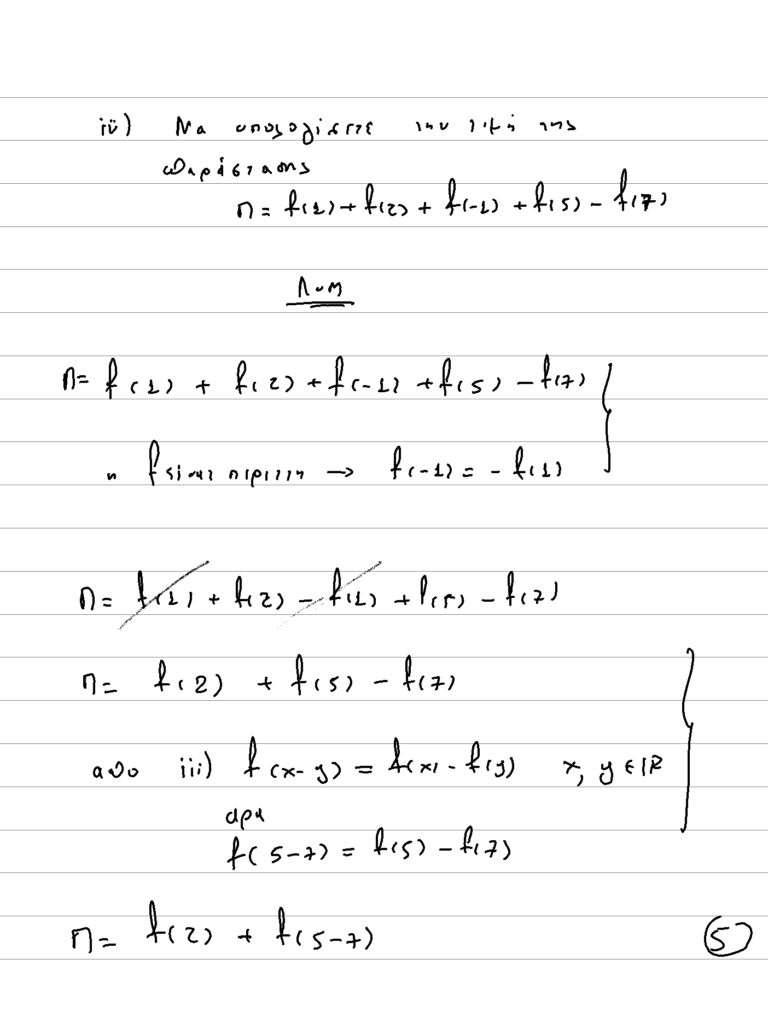 iv) Να υπολογίσετε την τιμή της
παράστασης
Π = f(1) + f(2) + f(-1) + f(5) - f(7)
Λυση
Π = f(1) + f(2) + f(-1) + f(5) - f(7)
η f είναι περιττη → f(-1) = - f(1)
Π = f(1) + f(2) - f(1) + f(5) - f(7)
Π = f(2) + f(5) - f(7)
απο iii) f(x-y) = f(x) - f(y) x, y ∈ ℝ
αρα
f(5-7) = f(5) - f(7)
Π = f(2) + f(5-7)
5